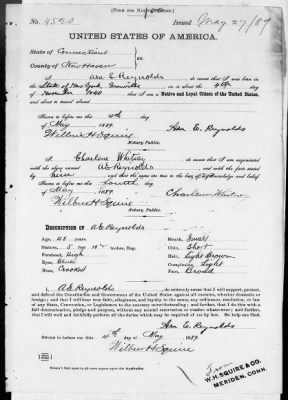 [FORM FOR NATIVE CITIZEN.]
No. 4520 Issued May 27/89
UNITED STATES OF AMERICA.
State of Connecticut
County of New Haven
I, Asa E. Reynolds do swear that I was born in the
State of New York on or about the 4th day
1840 that I am a Native and Loyal Citizen of the United States,
and about to travel abroad
Sworn to before me this 4th day
of May 1889. Asa E. Reynolds
Wilbur H Squire
Notary Public.
I, Charlene Whitney do swear that I am acquainted
with the above named A E Reynolds and with the facts stated
by him and that the same are true to the best of my knowledge and belief
Sworn to before me this fourth day
of May 1889.
Wilbur H Squire
Notary Public.
Description of A E Reynolds
Age, 48 years. Mouth, Small
Stature, 5 feet inches, Eng. Chin,
Forehead, High Hair, Light Brown
Eyes, Blue Complexion, Light
Nose, Crooked Face, Broad
I, A E Reynolds do solemnly swear that I will support, protect,
and defend the Constitution and Government of the United States against all enemies, whether domestic or
foreign; and that I will bear true faith, allegiance, and loyalty to the same, any ordinance, resolution, or law
of any State, Convention, or Legislature to the contrary notwithstanding; and further, that I do this with a
full determination, pledge, and purpose, without any mental reservation or evasion whatsoever; and further,
that I will well and faithfully perform all the duties which may be required of me by law. So help me God.
Asa E. Reynolds
Sworn to before me this 4th day of May 1889.
Wilbur H Squire
From
W.H. SQUIRE & CO.
MERIDEN, CONN.